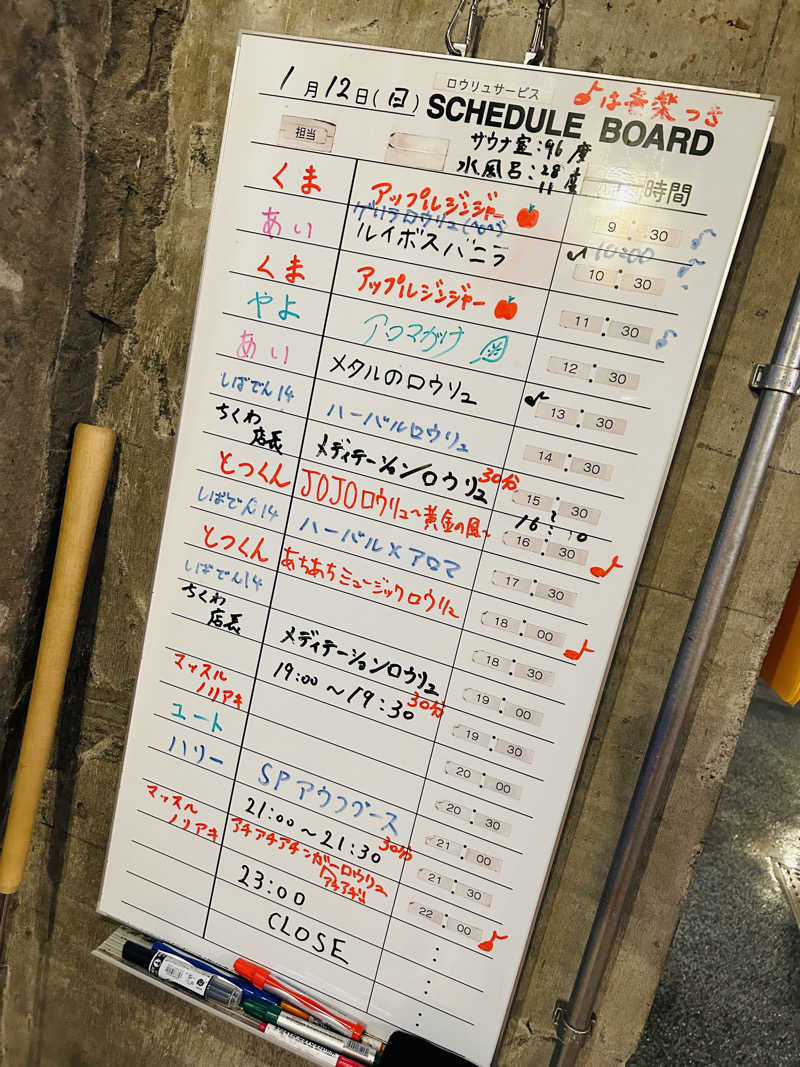 1月12日(日)
ロウリュサービス
♪は音楽つき
SCHEDULE BOARD
サウナ室:96度
水風呂:28度
11
担当
時間
くま アップルジンジャー 9:30 ♪
ゲリラロウリュ 10:00
あい ルイボスバニラ 10:30
くま アップルジンジャー 11:30 ♪
やよ アロマがけ 12:30
あい メタルのロウリュ ♪ 13:30
しばでん14 ハーバルロウリュ 14:30
ちくわ店長 メディテーションロウリュ 30分 15:30
~16:10
とっくん JOJOロウリュ~黄金の風~ 16:30 ♪
しばでん14 ハーバル×アロマ 17:30
とっくん あちあちミュージックロウリュ 18:00 ♪
しばでん14 18:30
ちくわ店長 メディテーションロウリュ 19:00
19:00~19:30 30分
マッスルノリアキ 19:30
ユート 20:00
ハリー SPアウフグース 20:30
21:00~21:30 30分 21:00
マッスルノリアキ アチアチアチンガーロウリュ 21:30
23:00 22:00 ♪
CLOSE